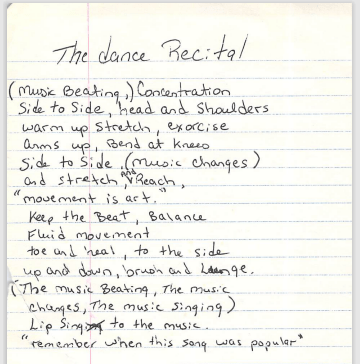 The dance Recital
(Music Beating,) Concentration
Side to Side, head and Shoulders
warm up Stretch, exorcise
arms up, Bend at Knees
Side to Side, (music changes)
and stretch, and Reach,
"movement is art."
Keep the Beat, Balance
Fluid movement
toe and heal, to the side
up and down, brush and Lounge.
(The music Beating, The music
changes, The music Singing)
Lip Sing to the music.
"remember when this song was popular"